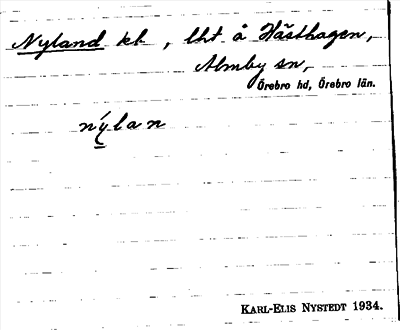 Nyland kt, lht å Hästhagen,
Almby sn,
Örebro hd, Örebro län.
nýlan
KARL-ELIS NYSTEDT 1934.